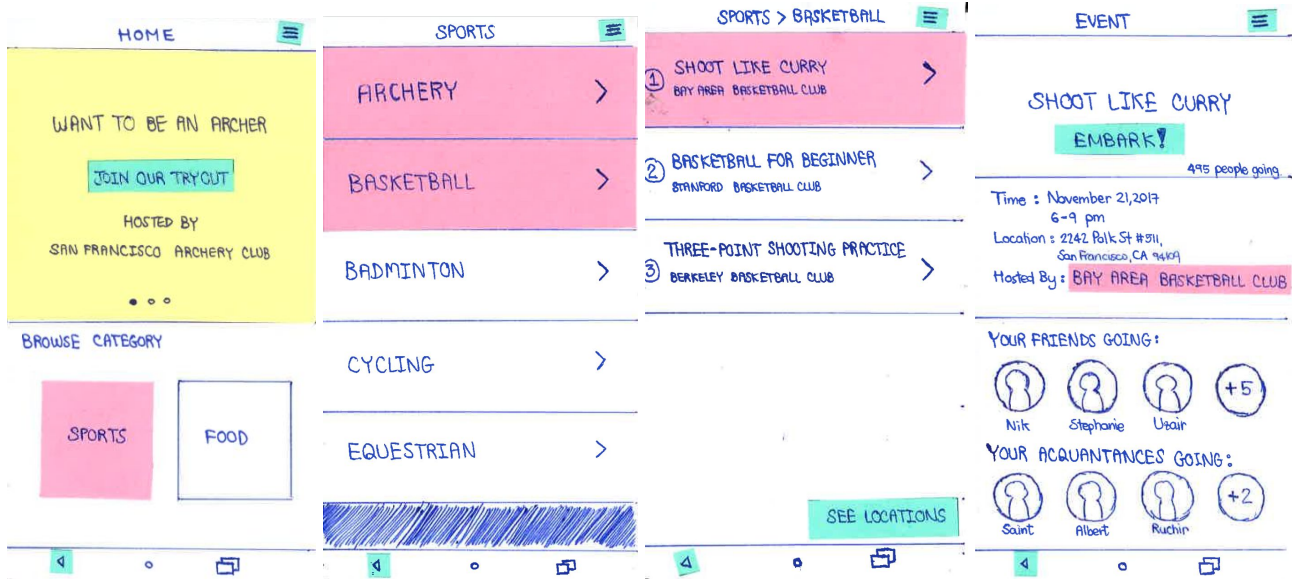 HOME
WANT TO BE AN ARCHER
JOIN OUR TRYOUT
HOSTED BY
SAN FRANCISCO ARCHERY CLUB
BROWSE CATEGORY
SPORTS
FOOD
SPORTS
ARCHERY
BASKETBALL
BADMINTON
CYCLING
EQUESTRIAN
SPORTS > BASKETBALL
1 SHOOT LIKE CURRY
BAY AREA BASKETBALL CLUB
2 BASKETBALL FOR BEGINNER
STANFORD BASKETBALL CLUB
3 THREE-POINT SHOOTING PRACTICE
BERKELEY BASKETBALL CLUB
SEE LOCATIONS
EVENT
SHOOT LIKE CURRY
EMBARK!
495 people going
Time : November 21, 2017
6-9 pm
Location : 2242 Polk St #511,
San Francisco, CA 94109
Hosted By : BAY AREA BASKETBALL CLUB
YOUR FRIENDS GOING:
+5
Nik
Stephanie
Uzair
YOUR ACQUANTANCES GOING:
+2
Saint
Albert
Ruchir